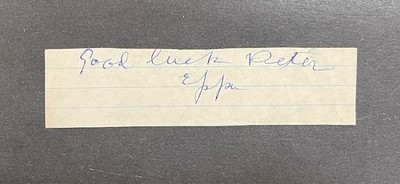 Good luck Peter
Eppie